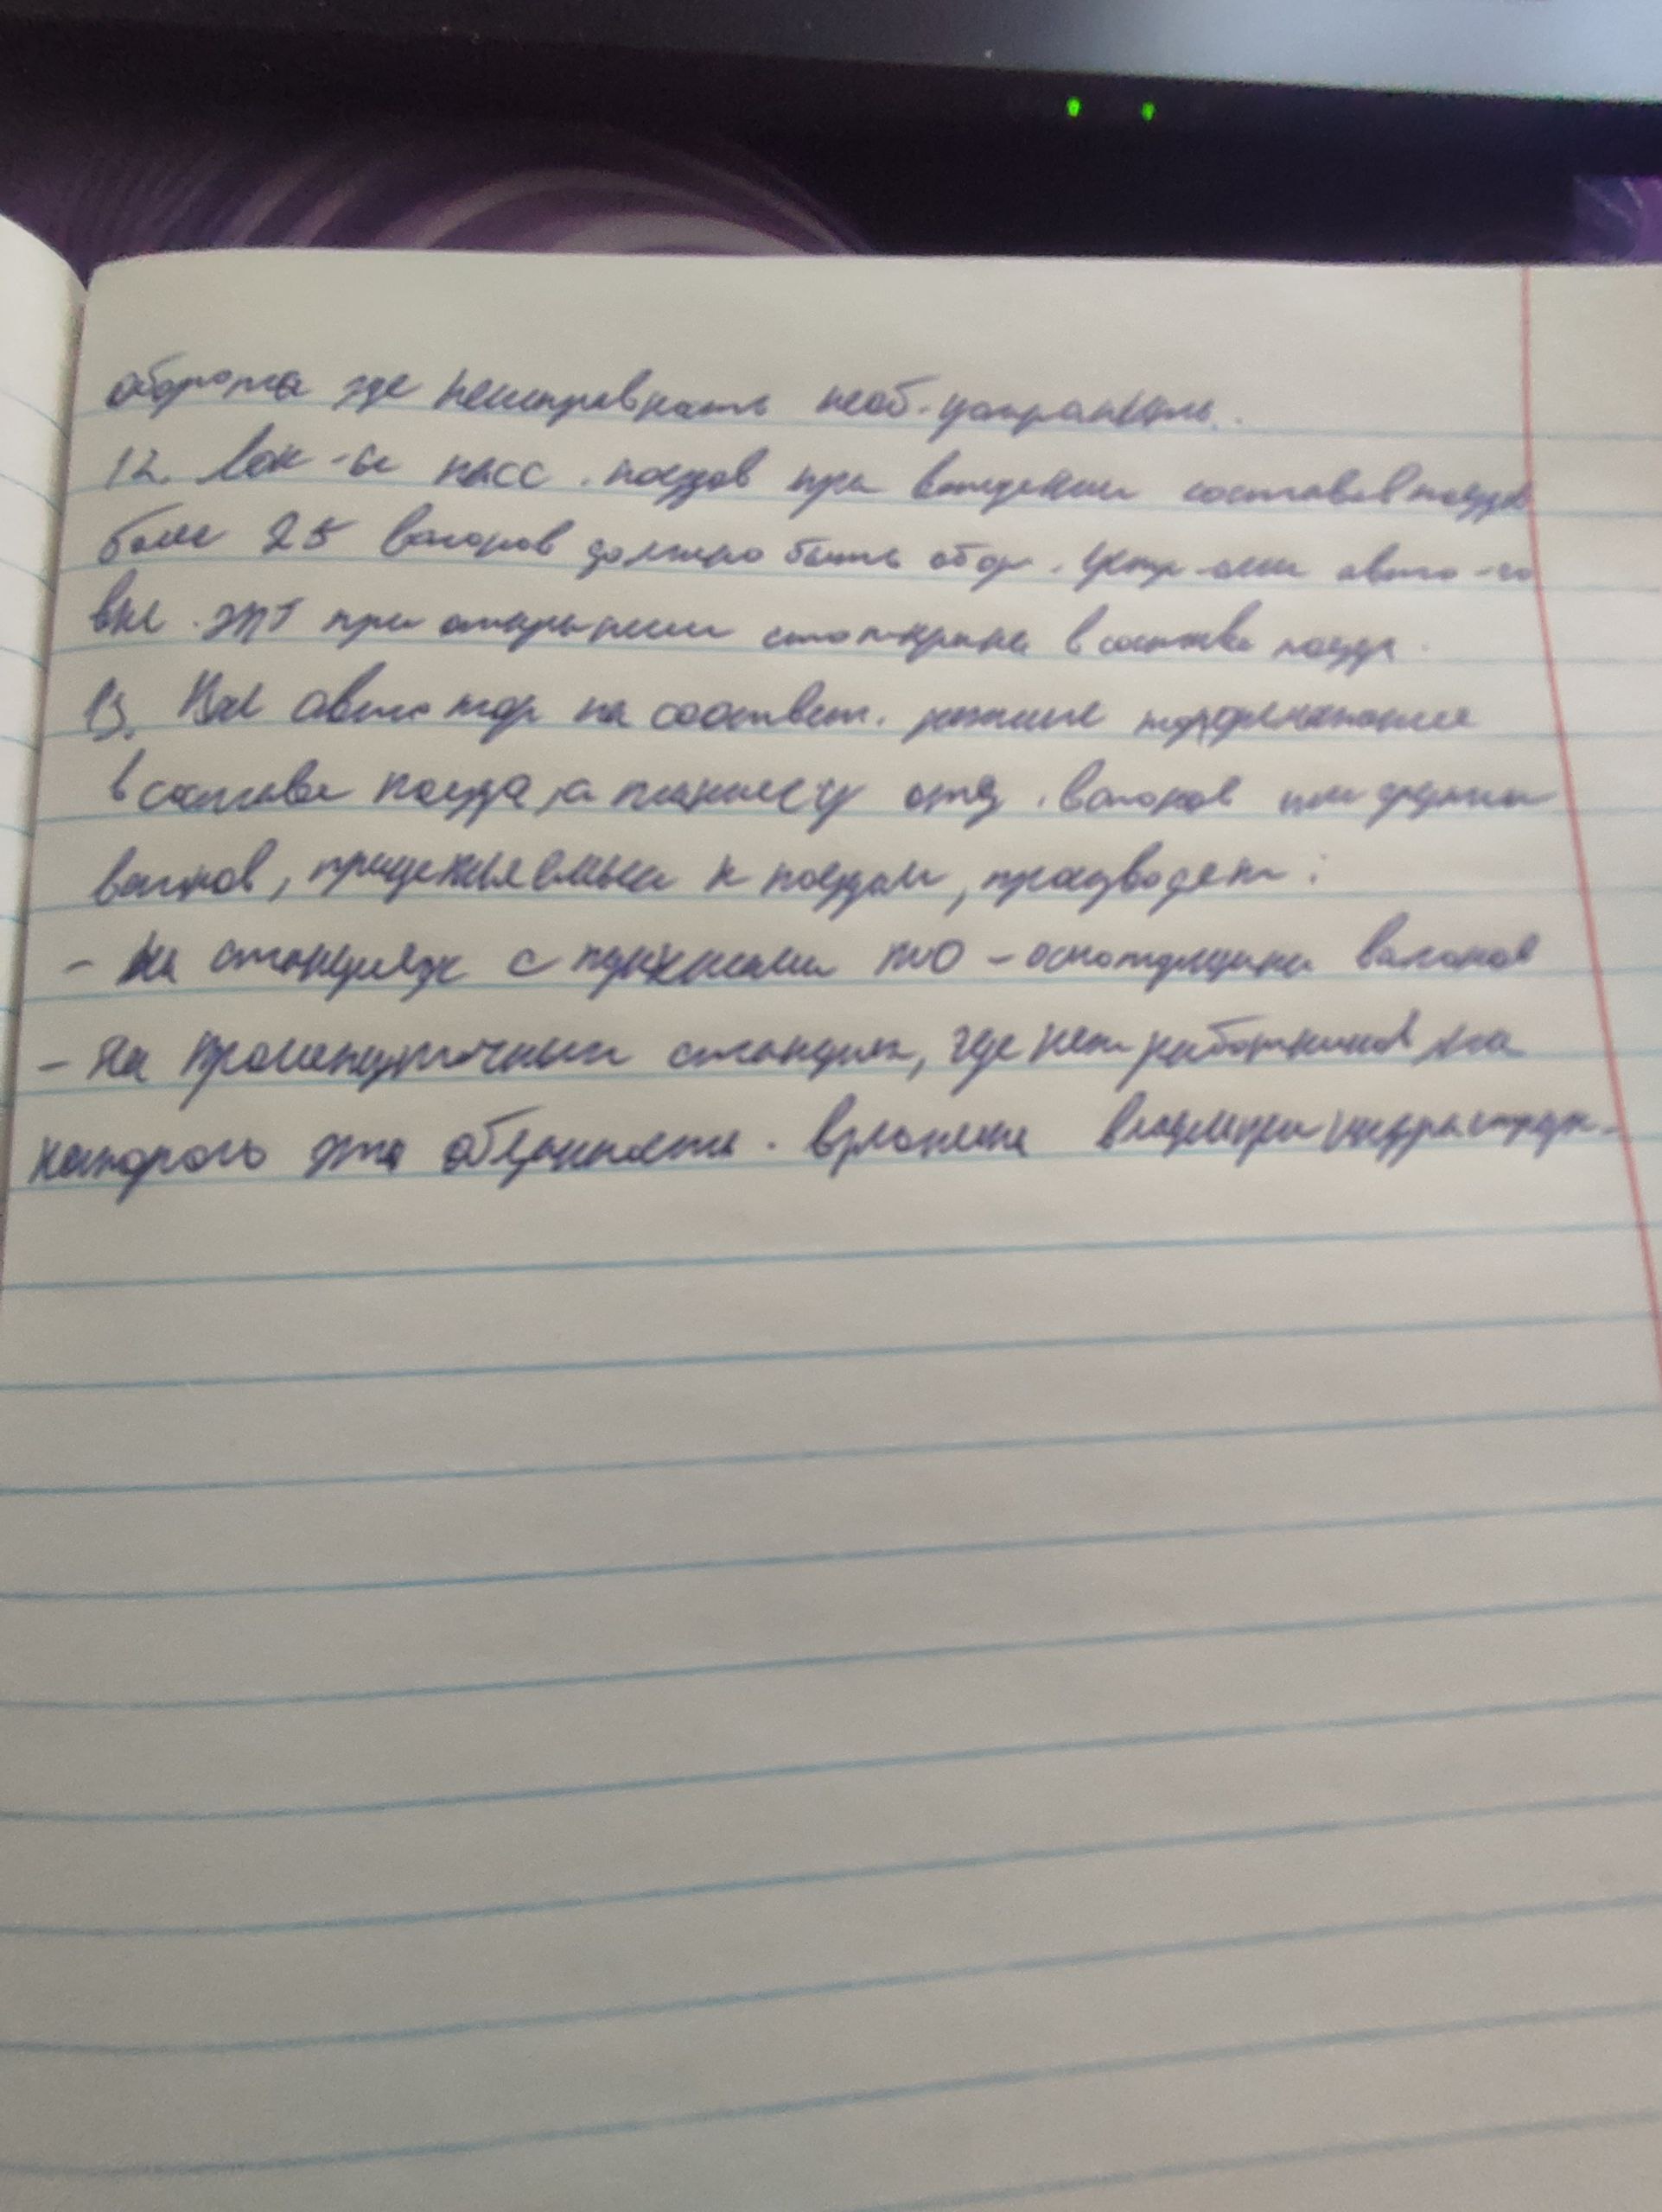 оборота где неисправность необ. устранить.
12. Лок-ы пасс. поездов при вождении составов поезда
более 25 вагонов должно быть обор. устр-ами авто-го
вкл. ЭПТ при открытии стоп-крана в составе поезда.
13. Вкл автотор на соответ. режимы торможения
в составе поезда, а также у отд. вагонов или группы
вагонов, прицепляемых к поездам, производят:
- На станциях с пунктами ТО - осмотрщики вагонов
- На промежуточных станциях, где нет работников на
которого эта обязанность. возложена владельцем инфраструк-